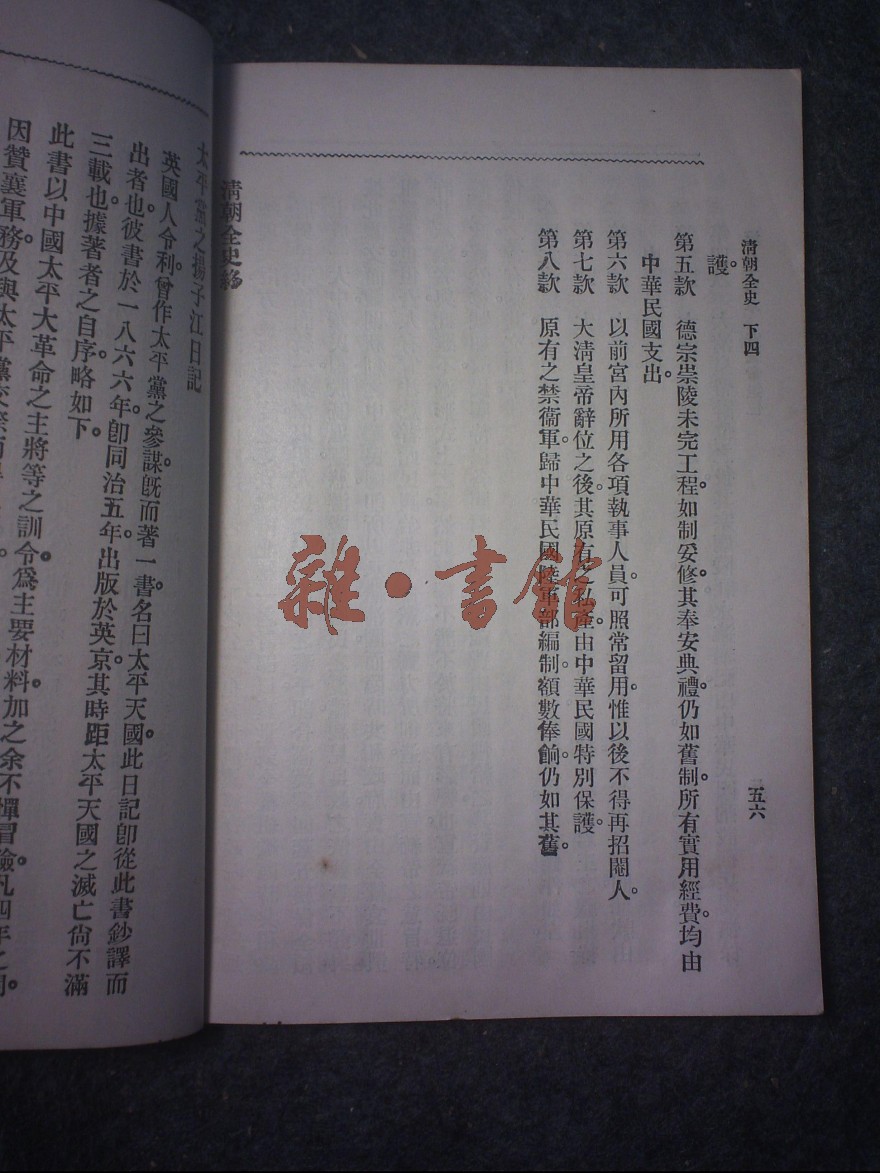 清朝全史 下四
五六
護。
第五款 德宗崇陵未完工程。如制妥修。其奉安典禮。仍如舊制。所有實用經費。均由
中華民國支出。
第六款 以前宮內所用各項執事人員。可照常留用。惟以後不得再招閹人。
第七款 大清皇帝辭位之後。其原有之私產。由中華民國特別保護。
第八款 原有之禁衞軍。歸中華民國陸軍部編制。額數俸餉。仍如其舊。
清朝全史終
太平黨之揚子江日記
英國人令利。曾作太平黨之參謀。旣而著一書。名曰太平天國。此日記卽從此書鈔譯而
出者也。彼書於一八六六年。卽同治五年。出版於英京。其時距太平天國之滅亡尙不滿
三載也。據著者之自序。略如下。
此書以中國太平大革命之主將等之訓令。爲主要材料。加之余不憚冒險。凡四年之間。
因贊襄軍務。及與太平黨交際
雜·書館